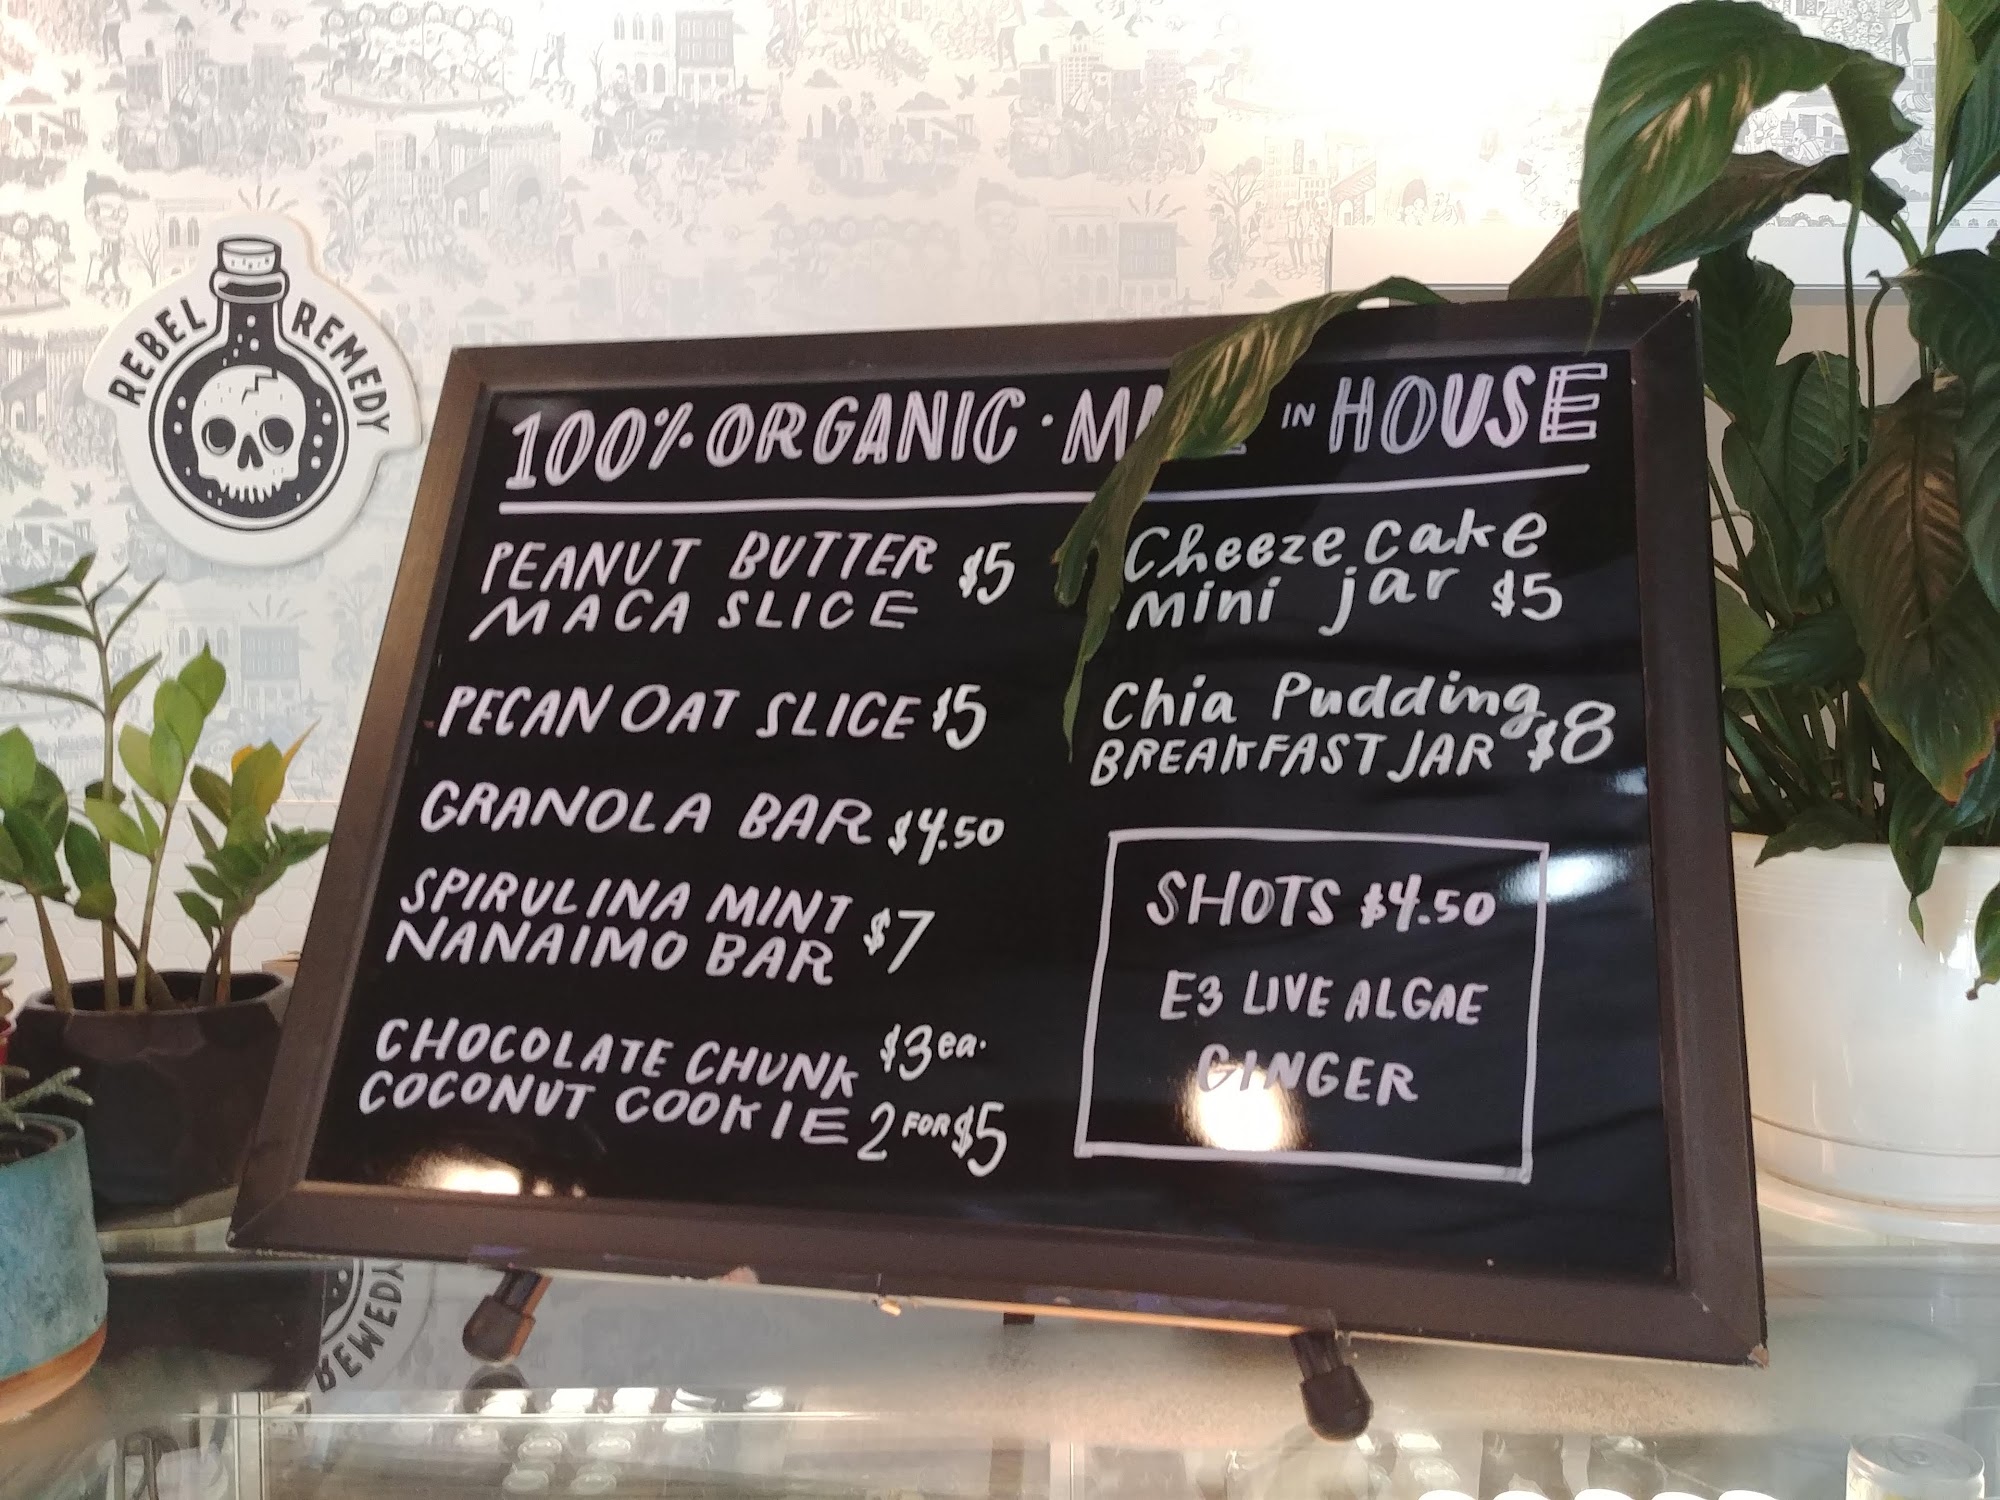 REBEL REMEDY
100% ORGANIC · MADE IN HOUSE
PEANUT BUTTER $5
MACA SLICE
PECAN OAT SLICE $5
GRANOLA BAR $4.50
SPIRULINA MINT
NANAIMO BAR $7
CHOCOLATE CHUNK $3 ea.
COCONUT COOKIE 2 FOR $5
Cheeze cake
mini jar $5
Chia Pudding
BREAKFAST JAR $8
SHOTS $4.50
E3 LIVE ALGAE
GINGER